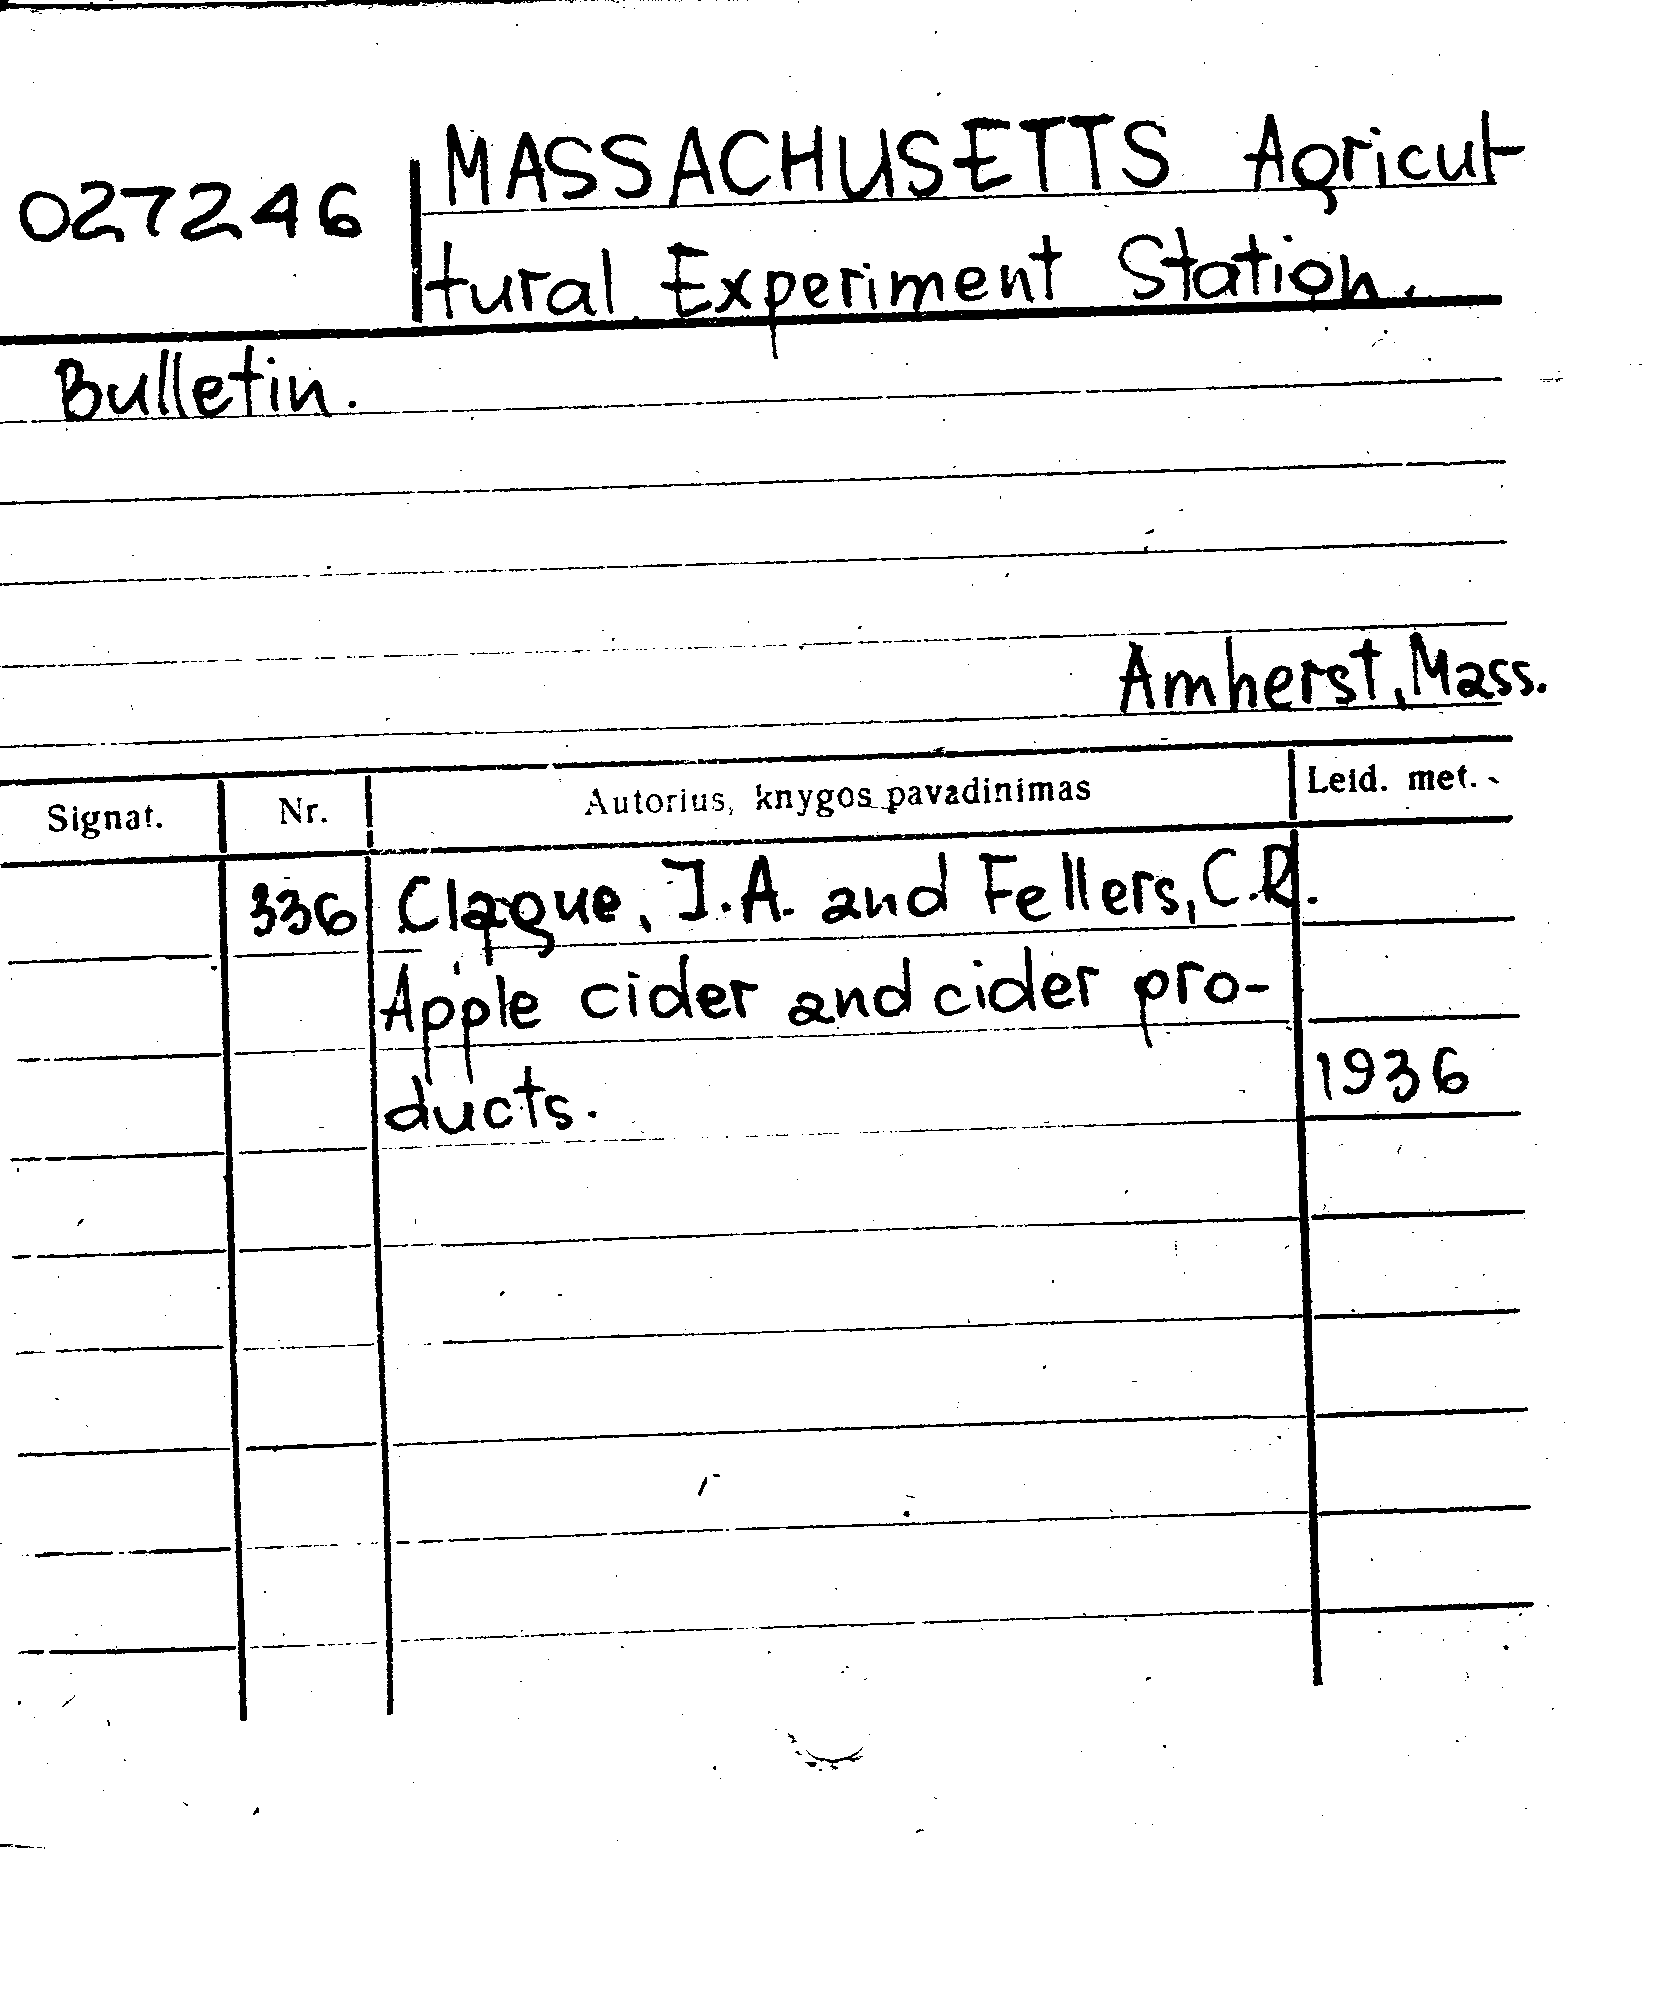 027246
MASSACHUSETTS Agricut-
tural Experiment Station.
Bulletin.
Amherst, Mass.
Signat. Nr. Autorius, knygos pavadinimas Leid. met.
336 Clague, J.A. and Fellers, C.R.
Apple cider and cider pro-
ducts. 1936